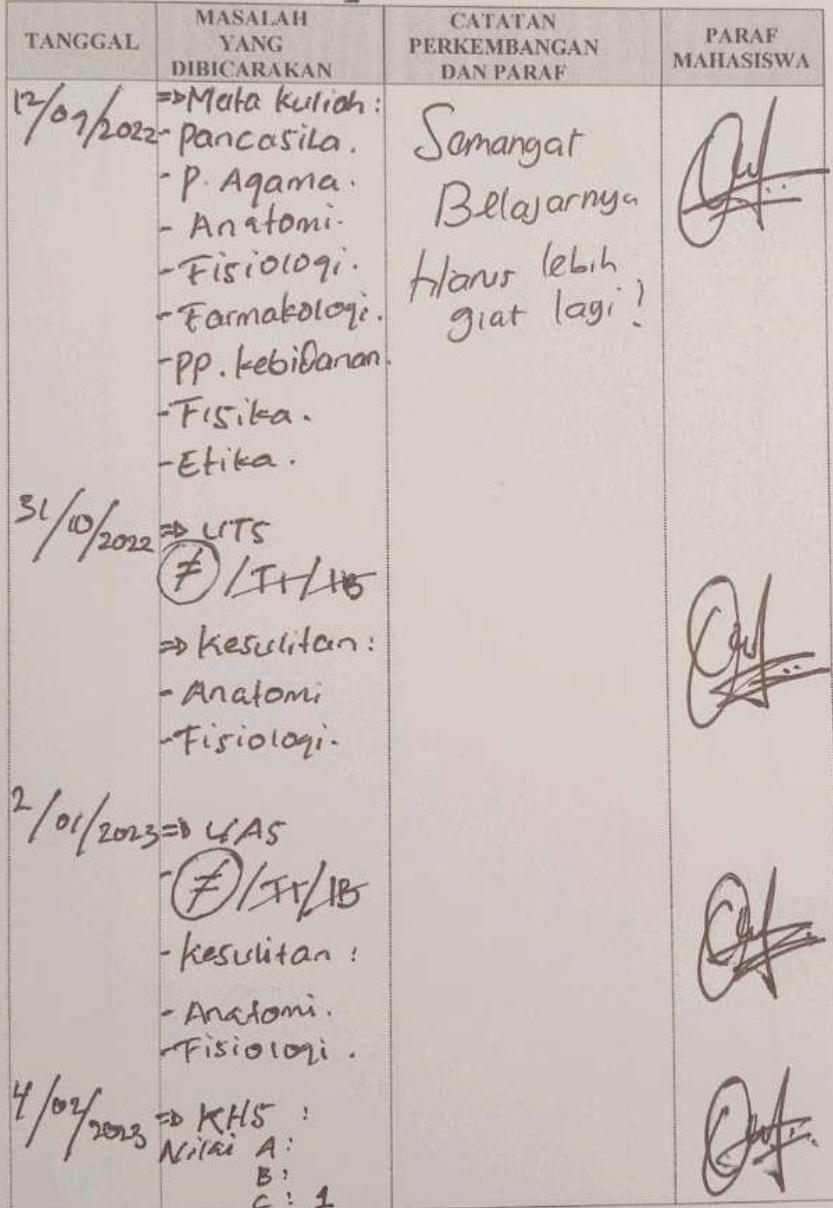 TANGGAL
MASALAH
YANG
DIBICARAKAN
CATATAN
PERKEMBANGAN
DAN PARAF
PARAF
MAHASISWA
12/09/2022
=> Mata kuliah :
- Pancasila.
- P. Agama.
- Anatomi.
- Fisiologi.
- Farmakologi.
- PP. kebidanan.
- Fisika.
- Etika.
Semangat
Belajarnya
Harus lebih
giat lagi !
31/10/2022
=> UTS
=> Kesulitan :
- Anatomi
- Fisiologi.
2/01/2023
=> UAS
- kesulitan :
- Anatomi.
- Fisiologi.
4/02/2023
=> KHS :
Nilai A :
B :
C : 1